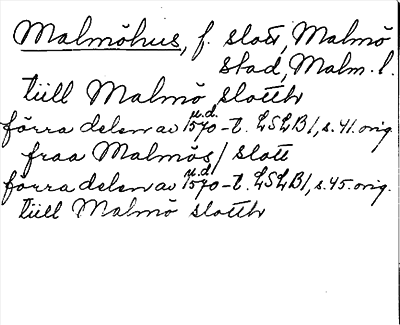 Malmöhus, f. slott, Malmö
stad, Malm. l.
tiill Malmö slotth
u.d.
förra delen av 1570-t. LSLB1, s. 41. orig
fraa Malmös/slott
u.d.
förra delen av 1570-t. LSLB1, s. 45. orig.
tiill Malmö slotth